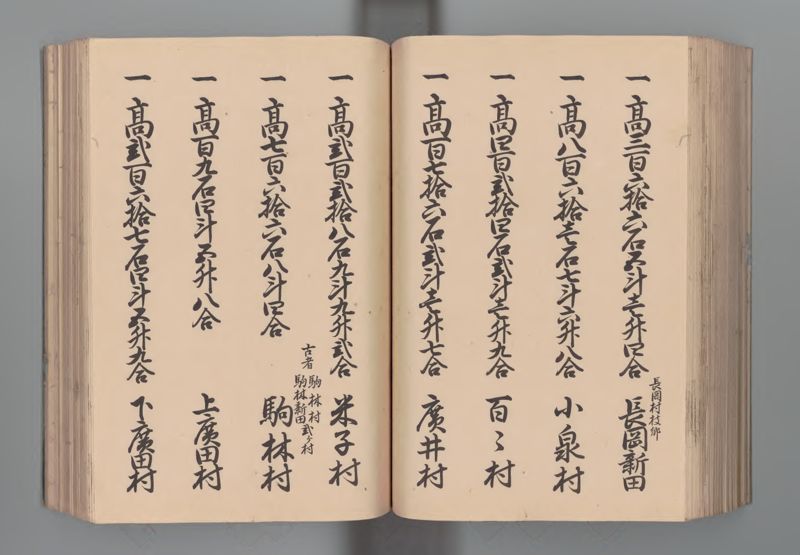 一 高三百六拾六石五斗壱升四合
長岡村枝郷
長岡新田
一 高八百六拾壱石七斗六升八合 小泉村
一 高四百弐拾四石弐斗壱升九合 百〻村
一 高百七拾六石弐斗壱升七合 廣井村
一 高弐百弐拾八石九斗九升弐合 米子村
一 高七百六拾六石八斗四合
古者 駒林村
駒林新田弐ヶ村
駒林村
一 高百九石四斗五升八合 上廣田村
一 高弐百六拾七石四斗五升九合 下廣田村